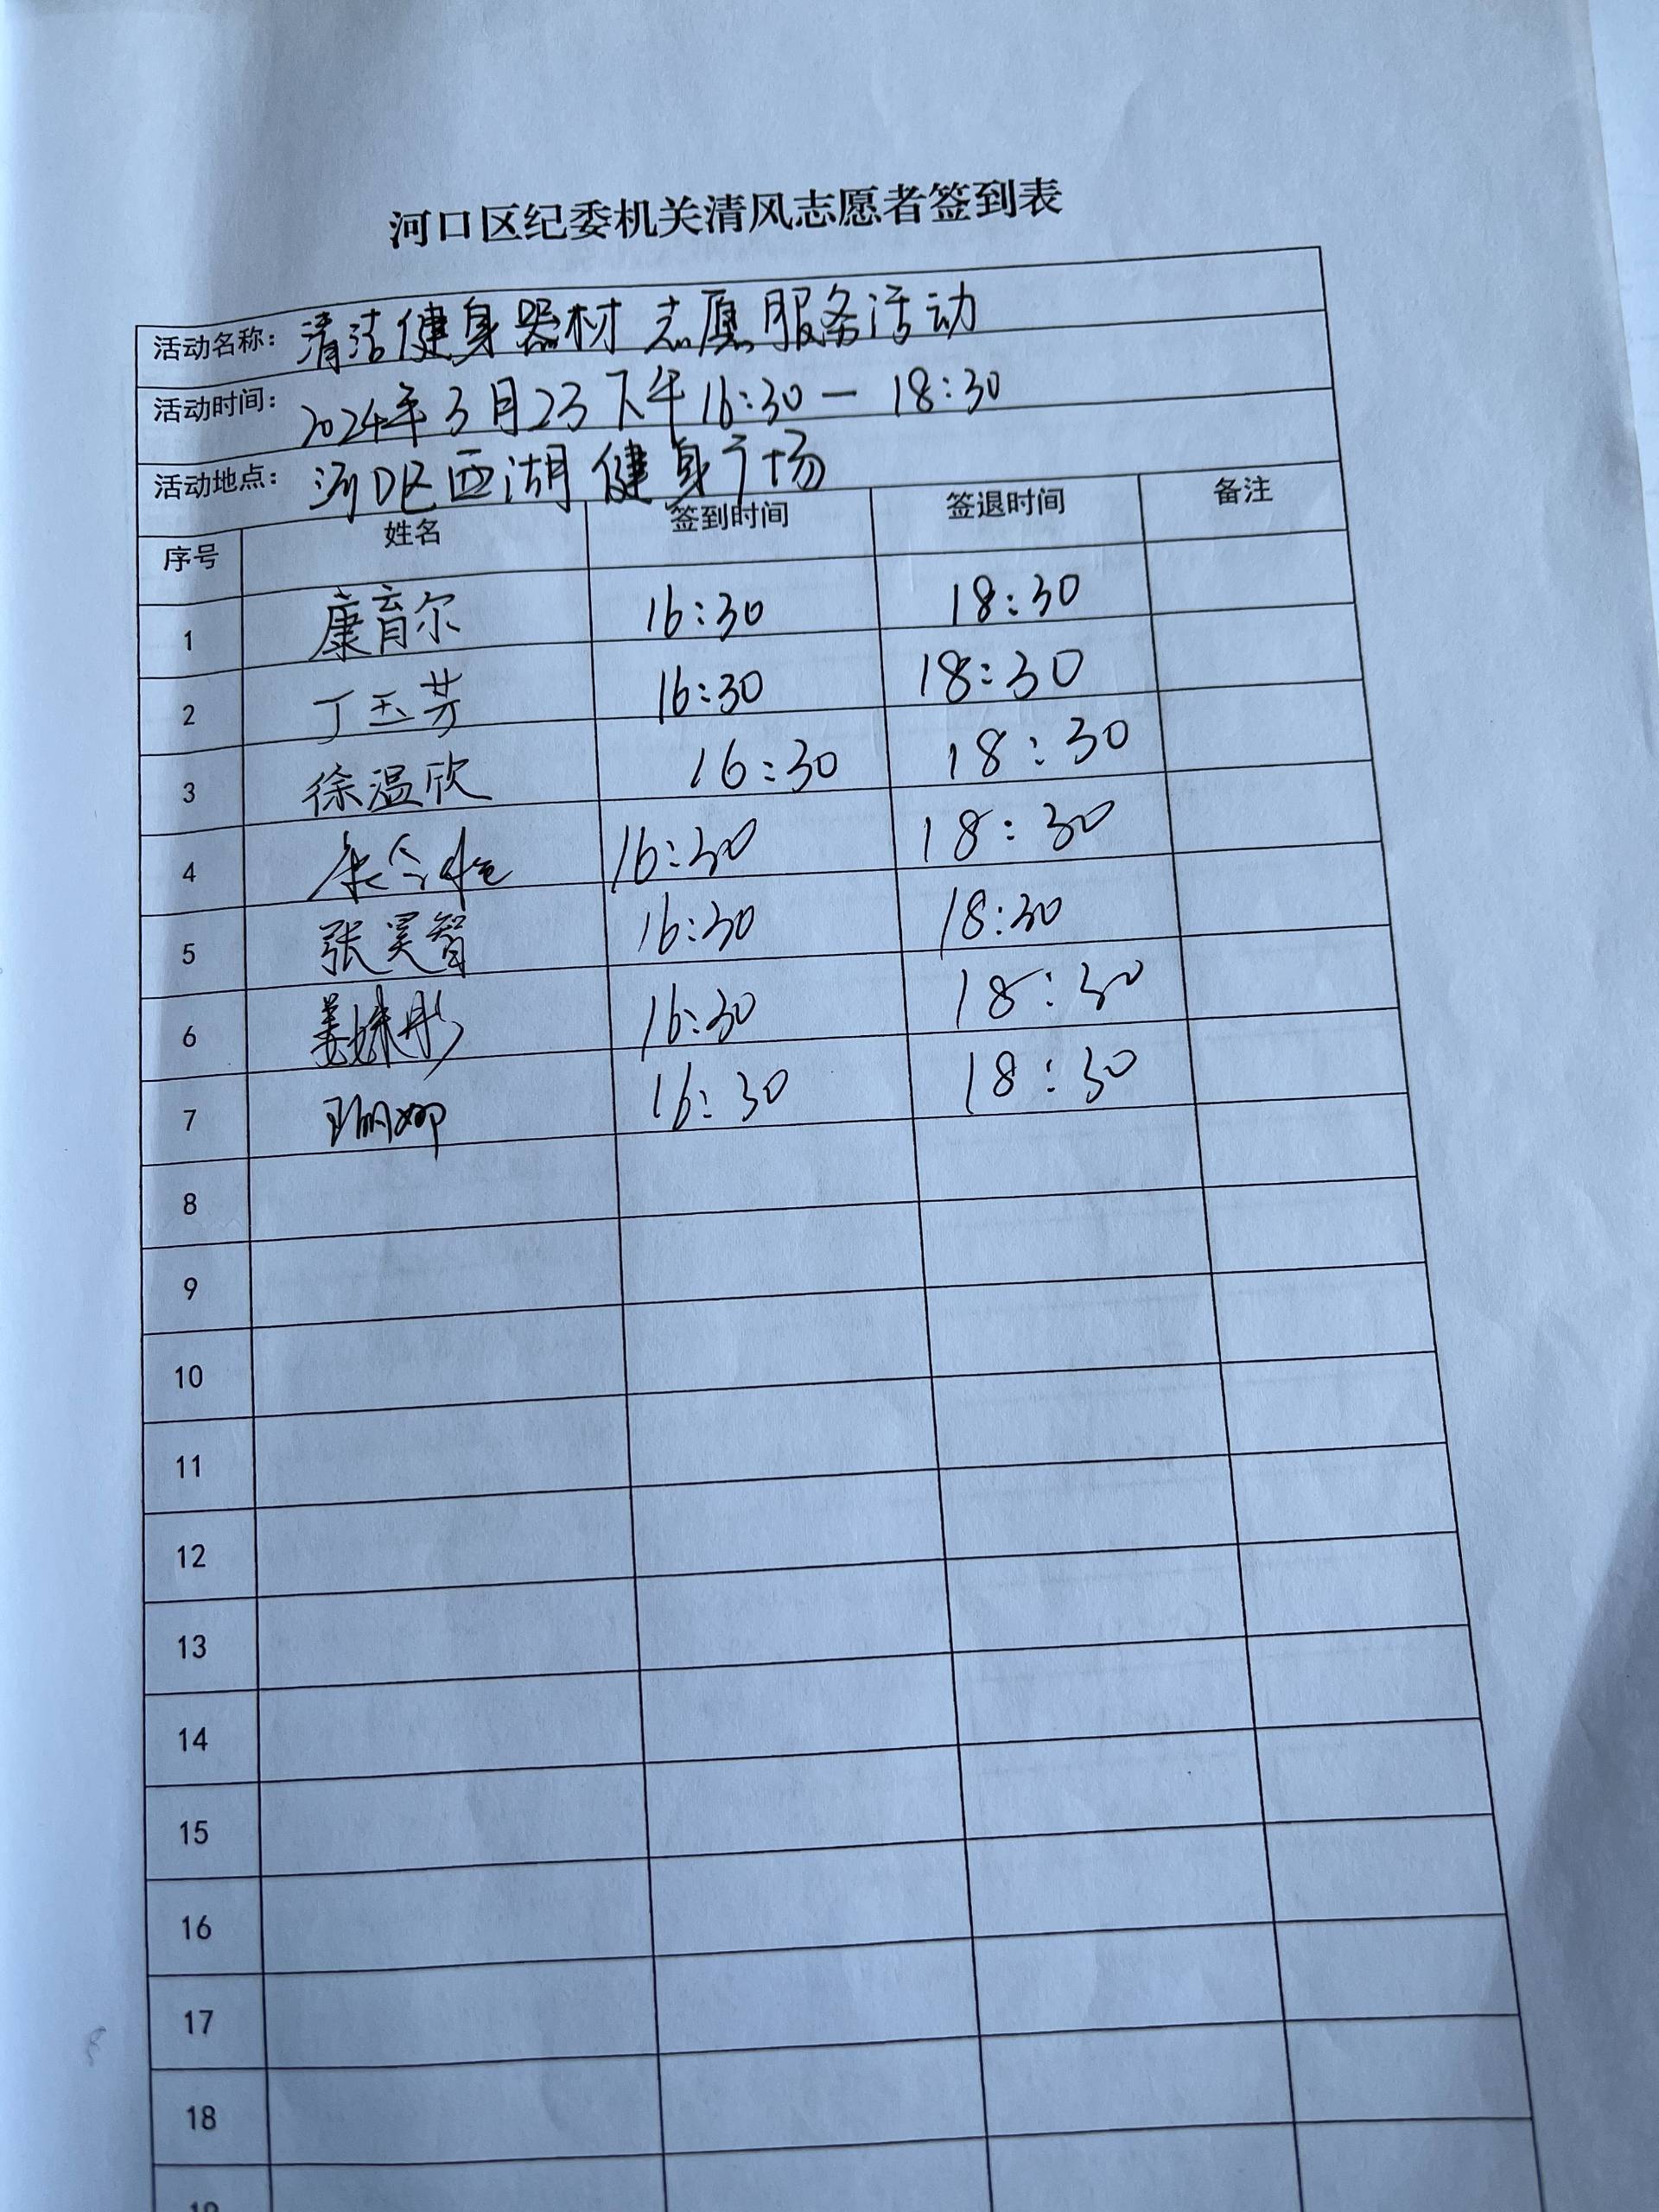 河口区纪委机关清风志愿者签到表
活动名称: 清洁健身器材志愿服务活动
活动时间: 2024年3月23下午16:30-18:30
活动地点: 河口区西湖健身广场
序号 姓名 签到时间 签退时间 备注
1 康育尔 16:30 18:30
2 丁玉芳 16:30 18:30
3 徐温欣 16:30 18:30
4 16:30 18:30
5 张昊智 16:30 18:30
6 姜姝彤 16:30 18:30
7 16:30 18:30
8
9
10
11
12
13
14
15
16
17
18
19